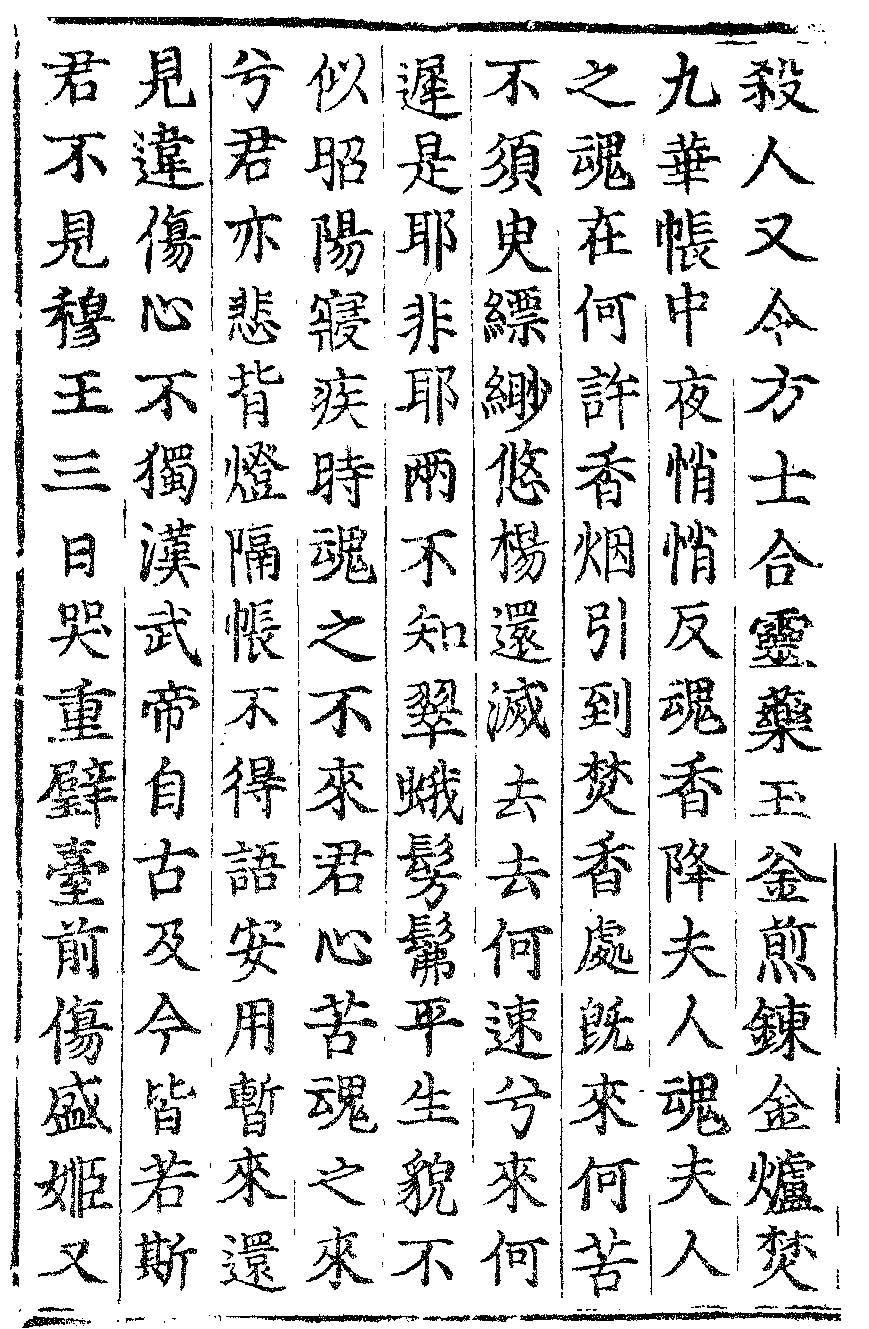 殺人又令方士合靈藥玉釜煎鍊金爐焚
九華帳中夜悄悄反魂香降夫人魂夫人
之魂在何許香烟引到焚香處旣來何苦
不須臾縹緲悠楊還滅去去何速兮來何
遲是耶非耶兩不知翠蛾髣髴平生貌不
似昭陽寢疾時魂之不來君心苦魂之來
兮君亦悲背燈隔帳不得語安用暫來還
見違傷心不獨漢武帝自古及今皆若斯
君不見穆王三日哭重璧臺前傷盛姬又